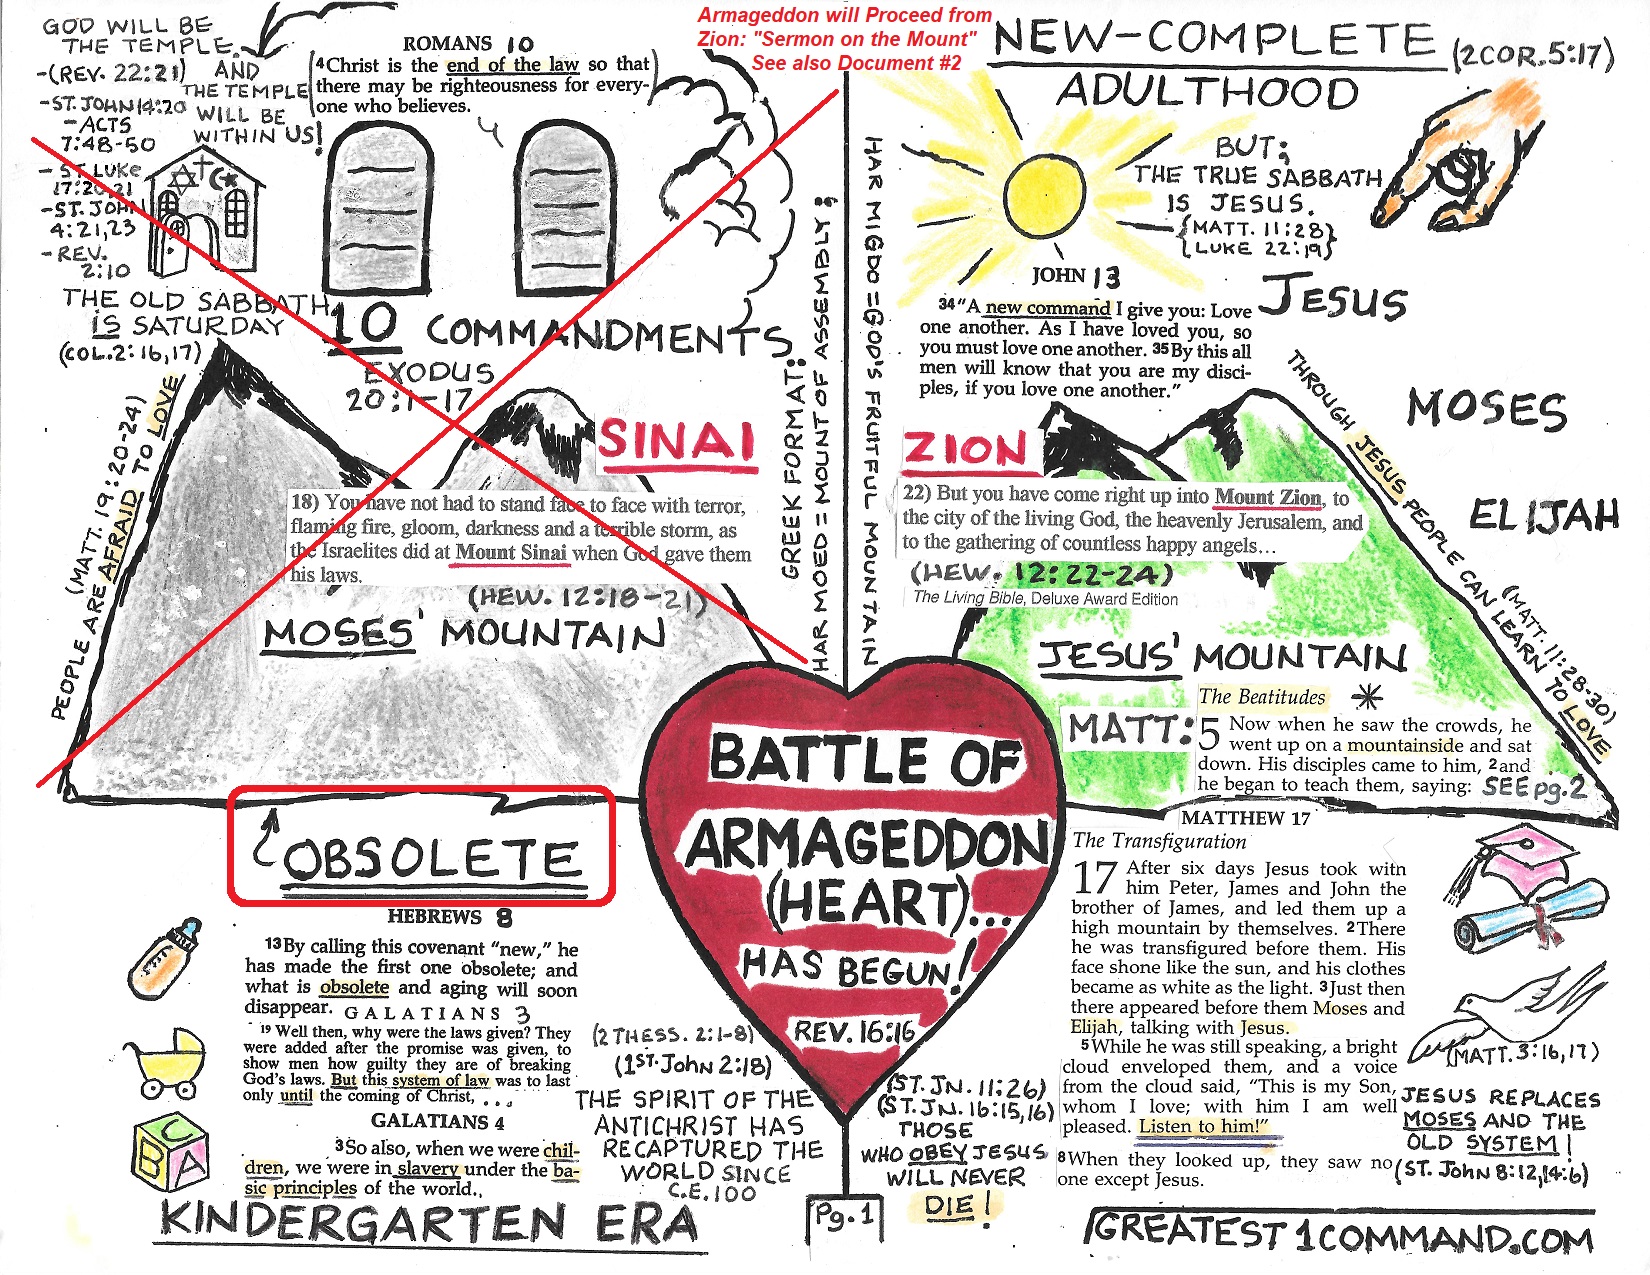 Armageddon will Proceed from
Zion: "Sermon on the Mount"
See also Document #2
GOD WILL BE
THE TEMPLE.
-(REV. 22:21) AND
THE TEMPLE
-ST. JOHN 14:20 WILL BE
-ACTS WITHIN US!
7:48-50
- ST. LUKE
17:20,21
-ST. JOHN
4:21,23
- REV.
2:10
ROMANS 10
4Christ is the end of the law so that
there may be righteousness for every-
one who believes.
THE OLD SABBATH
IS SATURDAY
(COL.2:16,17)
10 COMMANDMENTS
EXODUS
20:1-17
SINAI
18) You have not had to stand face to face with terror,
flaming fire, gloom, darkness and a terrible storm, as
the Israelites did at Mount Sinai when God gave them
his laws.
(HEW. 12:18-21)
MOSES' MOUNTAIN
PEOPLE ARE AFRAID TO LOVE
(MATT. 19:20-24)
GREEK FORMAT:
HAR MOED=MOUNT OF ASSEMBLY;
HAR MIGDO=GOD'S FRUITFUL MOUNTAIN
OBSOLETE
HEBREWS 8
13By calling this covenant "new," he
has made the first one obsolete; and
what is obsolete and aging will soon
disappear. GALATIANS 3
19 Well then, why were the laws given? They
were added after the promise was given, to
show men how guilty they are of breaking
God's laws. But this system of law was to last
only until the coming of Christ, . . .
GALATIANS 4
3So also, when we were chil-
dren, we were in slavery under the ba-
sic principles of the world..
C
B A
KINDERGARTEN ERA
(2 THESS. 2:1-8)
(1ST. John 2:18)
THE SPIRIT OF THE
ANTICHRIST HAS
RECAPTURED THE
WORLD SINCE
C.E.100
BATTLE OF
ARMAGEDDON
(HEART)...
HAS BEGUN!
REV. 16:16
Pg. 1
(ST. JN. 11:26)
(ST. JN. 16:15,16)
THOSE
WHO OBEY JESUS
WILL NEVER
DIE!
NEW-COMPLETE (2COR.5:17)
ADULTHOOD
BUT;
THE TRUE SABBATH
IS JESUS.
{MATT. 11:28}
{LUKE 22:19}
JOHN 13
34"A new command I give you: Love
one another. As I have loved you, so
you must love one another. 35By this all
men will know that you are my disci-
ples, if you love one another."
JESUS
MOSES
ELIJAH
ZION
22) But you have come right up into Mount Zion, to
the city of the living God, the heavenly Jerusalem, and
to the gathering of countless happy angels...
(HEW. 12:22-24)
The Living Bible, Deluxe Award Edition
JESUS' MOUNTAIN
THROUGH JESUS PEOPLE CAN LEARN TO LOVE
(MATT. 11:28-30)
The Beatitudes *
MATT: 5 Now when he saw the crowds, he
went up on a mountainside and sat
down. His disciples came to him, 2and
he began to teach them, saying: SEE pg.2
MATTHEW 17
The Transfiguration
17 After six days Jesus took with
him Peter, James and John the
brother of James, and led them up a
high mountain by themselves. 2There
he was transfigured before them. His
face shone like the sun, and his clothes
became as white as the light. 3Just then
there appeared before them Moses and
Elijah, talking with Jesus.
5While he was still speaking, a bright
cloud enveloped them, and a voice
from the cloud said, "This is my Son,
whom I love; with him I am well
pleased. Listen to him!"
8When they looked up, they saw no
one except Jesus.
(MATT. 3:16,17)
JESUS REPLACES
MOSES AND THE
OLD SYSTEM!
(ST. John 8:12,14:6)
GREATEST1COMMAND.COM